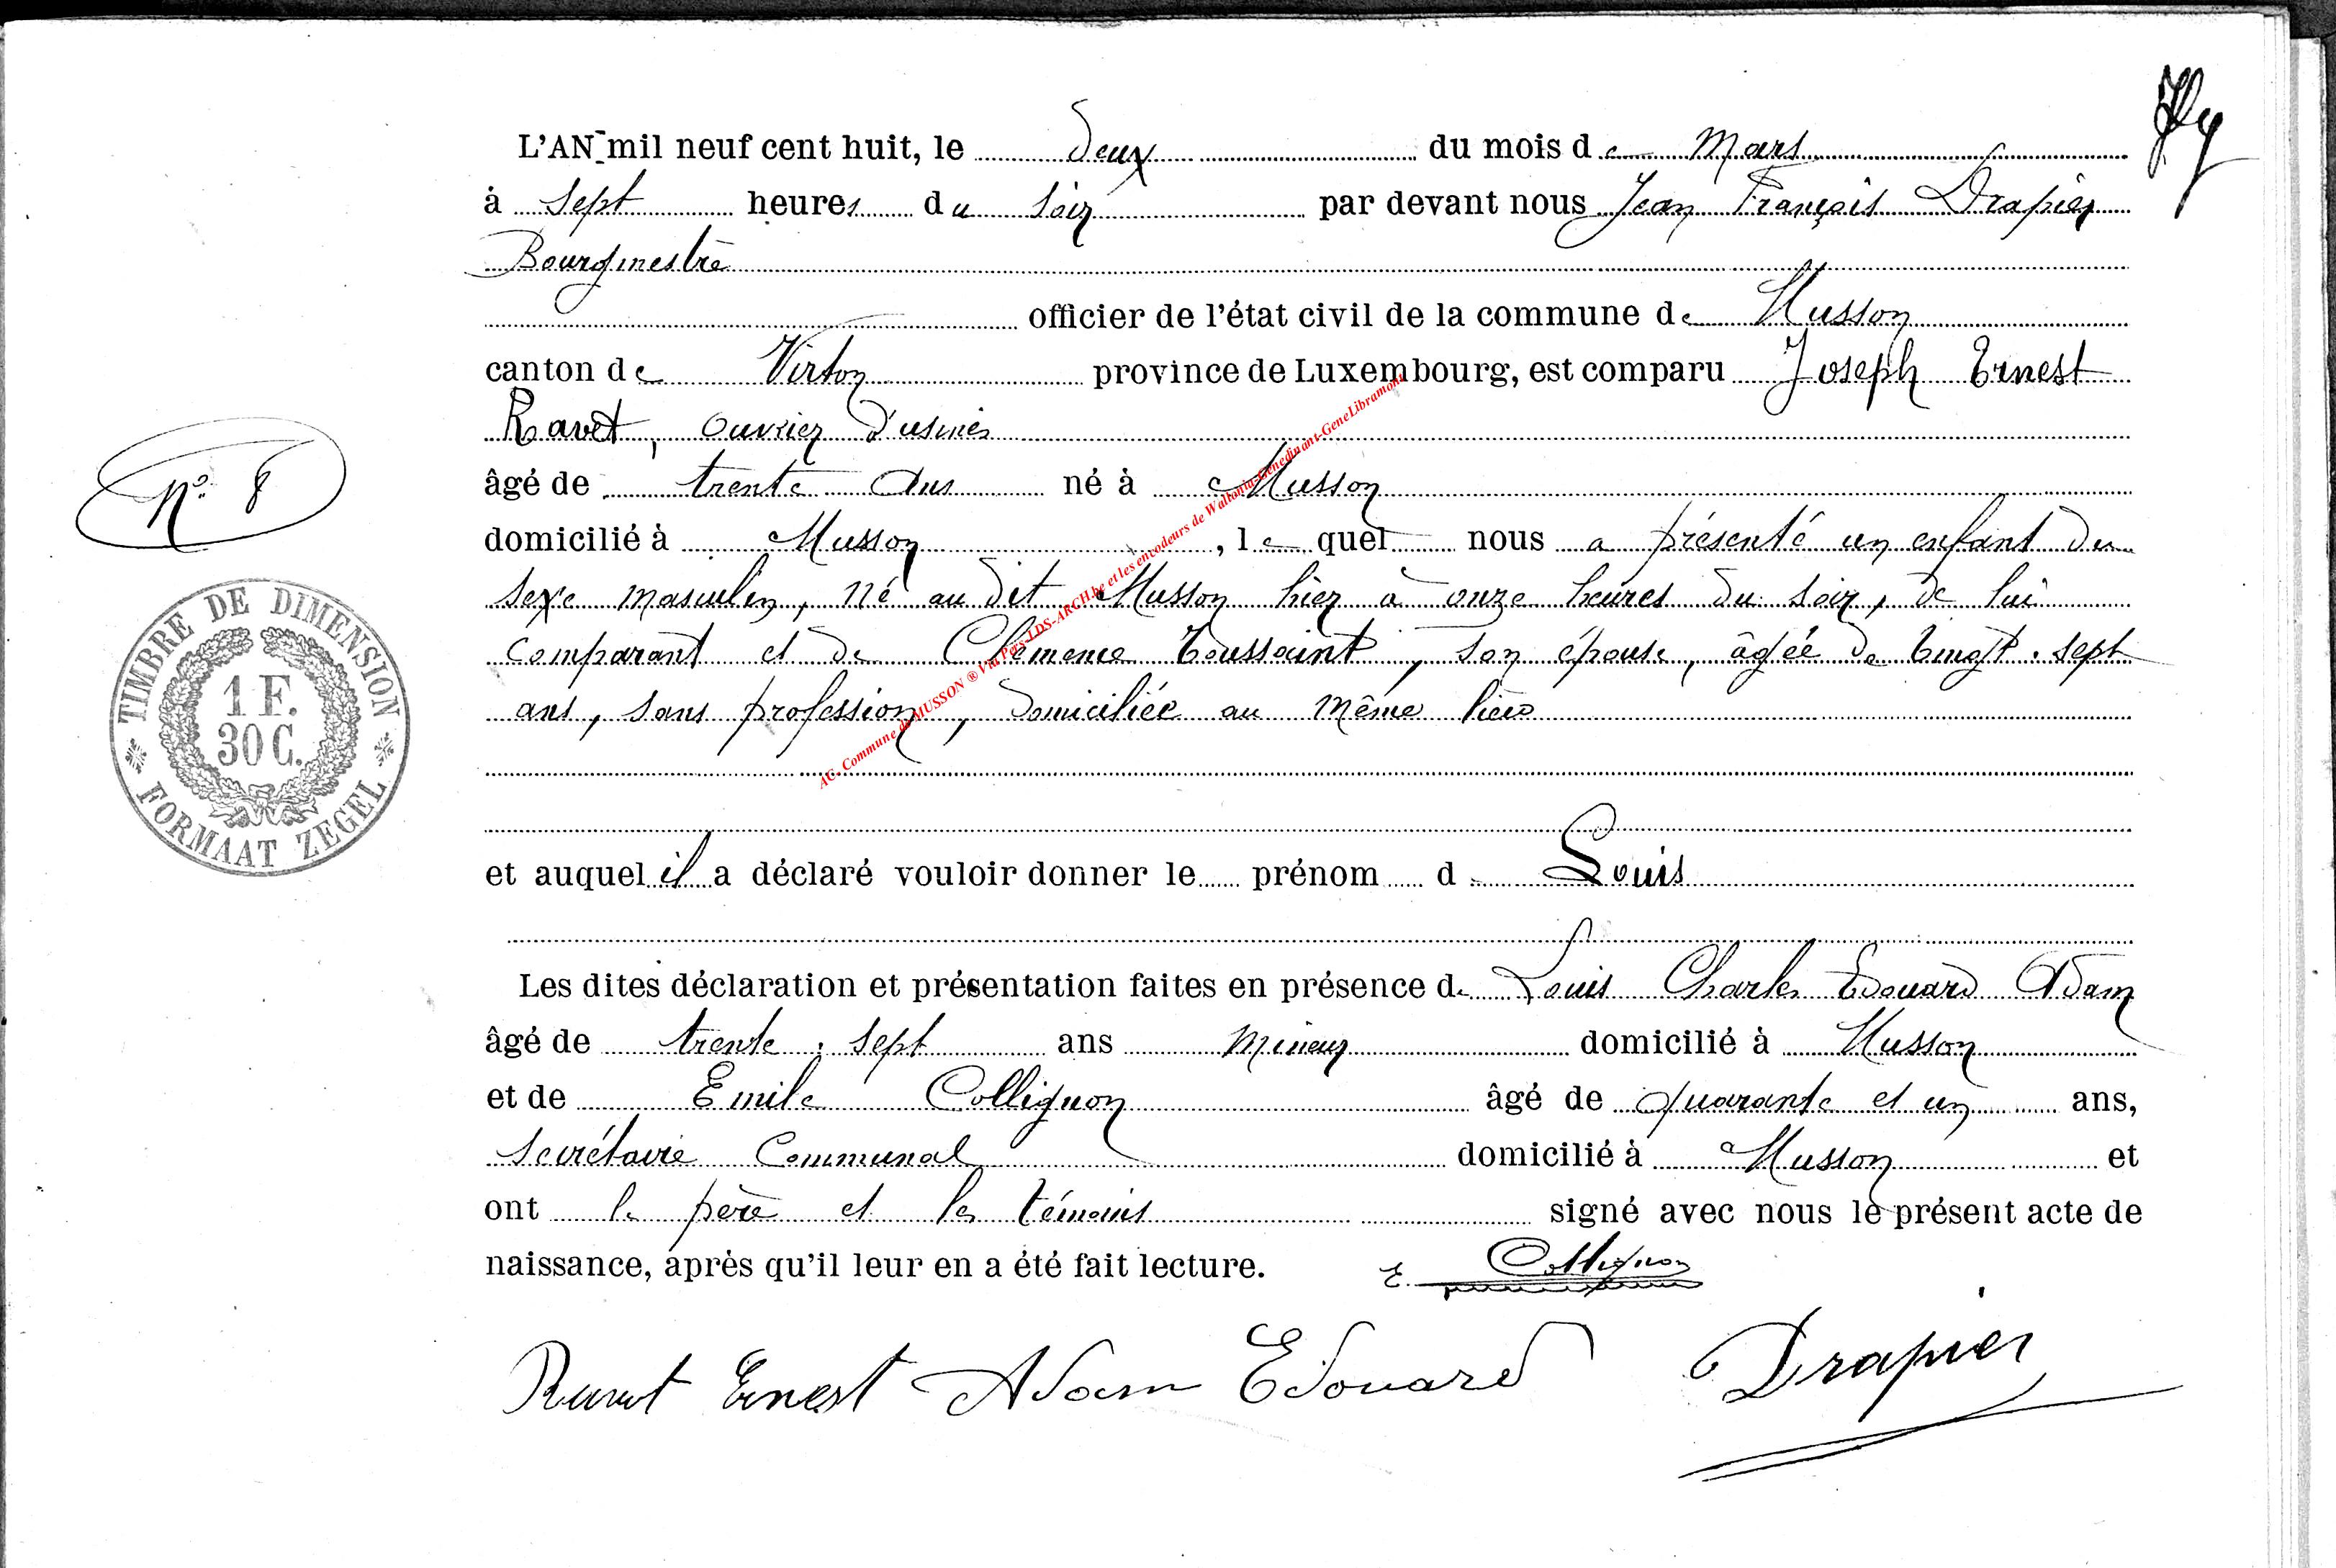 L'AN mil neuf cent huit, le deux du mois de Mars
à sept heures du soir par devant nous Jean François Drapier
Bourgmestre
officier de l'état civil de la commune de Musson
canton de Virton province de Luxembourg, est comparu Joseph Ernest
Ravet, ouvrier d'usines
âgé de trente ans né à Musson
domicilié à Musson, lequel nous a présenté un enfant du
sexe masculin, né au dit Musson hier à onze heures du soir, de lui
comparant et de Clémence Toussaint, son épouse, âgée de vingt-sept
ans, sans profession, domiciliée au même lieu
et auquel il a déclaré vouloir donner le prénom de Louis
Les dites déclaration et présentation faites en présence de Louis Charles Edouard Adam
âgé de trente-sept ans mineur domicilié à Musson
et de Emile Collignon âgé de quarante et un ans,
secrétaire communal domicilié à Musson et
ont le père et les témoins signé avec nous le présent acte de
naissance, après qu'il leur en a été fait lecture. E. Collignon
Ravet Ernest Adam Edouard Drapier
N° 8
TIMBRE DE DIMENSION
1 F.
30 C.
FORMAAT ZEGEL
AC. Commune de MUSSON ® Via Pers-LDS-ARCH.be et les encodeurs de Wallonia-Genedinant-GeneLibramont